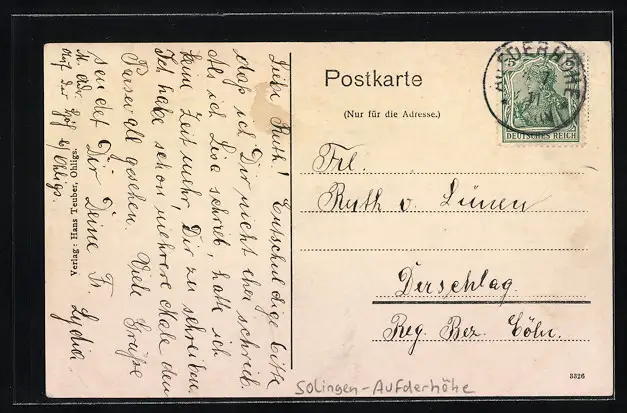 Liebe Ruth! Entschuldige bitte
daß ich Dir nicht eher schrieb.
Als ich Lisa schrieb, hatte ich
keine Zeit mehr, Dir zu schreiben.
Ich habe schon mehrere Male den
gesehen. Viele Grüße
sendet Dir Deine Fr. Lydia.
M. Adr.
Auf der Höh b/ Ohligs.
Verlag: Hans Teuber, Ohligs.
Postkarte
(Nur für die Adresse.)
AUFDERHÖHE
DEUTSCHES REICH
Frl.
Ruth v. Lünen
Derschlag.
Reg. Bez. Cöln.
3326
Solingen-Aufderhöhe